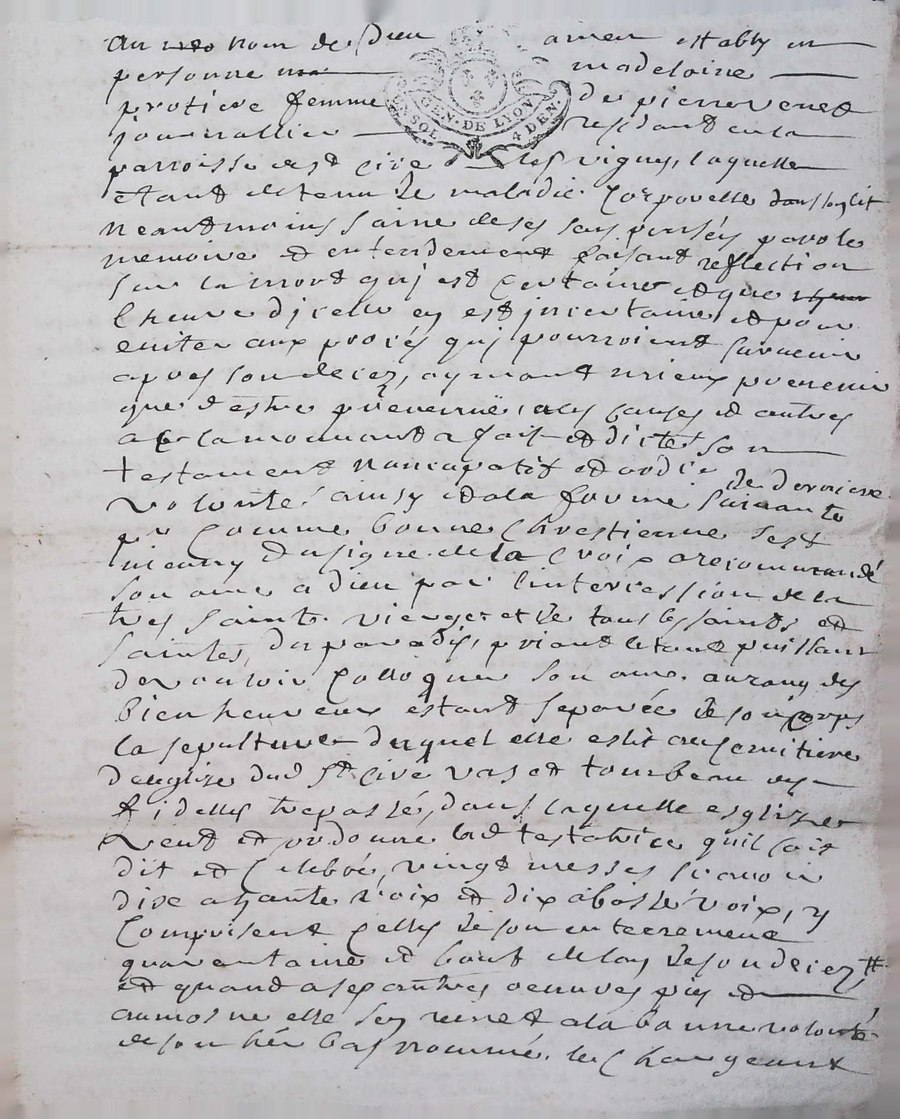 Au nom de Dieu amen establÿ en
personne madelaine
protiere femme de pierre venet
journallier residant en la
parroisse de st cire les vignes, laquelle
étant detenu de maladie Corporelle dans son lit
neantmoins saine de ses sens pensés parole
memoire et entendement faisant reflection
sur la mort quj est certaine et que
lheure djcelle est jncertaine, et pour
eviter aux procés quj pourroient survenir
apres son decez, aymant mieux prevenir
que destre prevenüe, a ces causes et autres
a la mouvant a fait et dicté son
testament nuncupatif et ordre de derniere
volonté ainsy et a la forme suivante
pr Comme bonne Chrestienne sest
muny du signe de la Croix a recommandé
son ame a dieu par lintercession de la
tres sainte vierge et de tous les saints et
saintes du paradis, priant le tout puissant
de vouloir Colloquer son ame au rang des
bien heureux estant separée de son corps
la sepulture duquel elle eslit au cemitiere
deglize dud st Cire vas et tombeau des
fidelles trepassé, dans laquelle esglize
veut et ordonne lad testatrice quil soit
dit et Celebré, vingt messes scavoir
dix a haute voix et dix a basse voix, y
Comprisent Celles de son enterrement
quarantaine et bout de lan de son decez, #
et quand a ses autres oeuvres pies et
aumosne elle sen remet a la bonne volonté
de son hér bas nommé, les Chargeant
GEN. DE LYON
SOL 4 DEN.